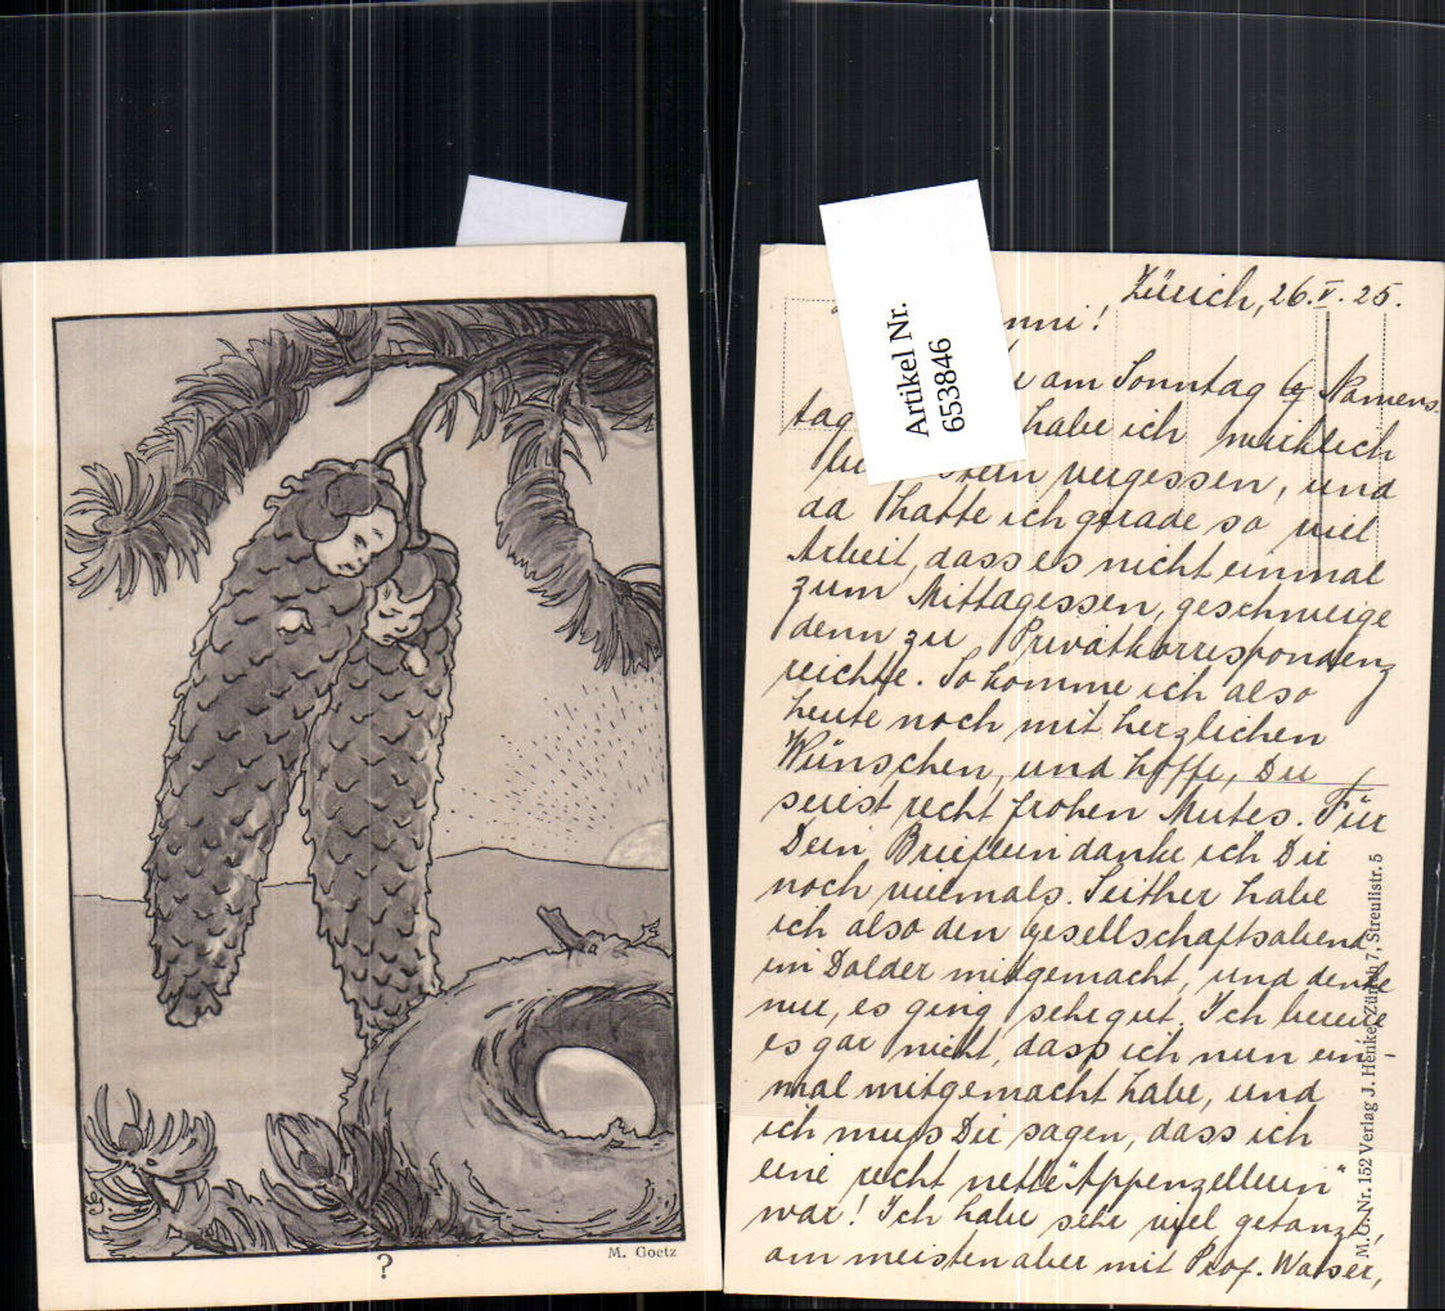 M. Goetz
?
Artikel Nr.
653846
Zürich, 26.V.25.
nni!
am Sonntag Namens-
tag habe ich wirklich
vergessen, und
da hatte ich gerade so viel
Arbeit, dass es nicht einmal
zum Mittagessen, geschweige
denn zu Privatkorrespondenz
reichte. So komme ich also
heute noch mit herzlichen
Wünschen, und hoffe, Du
seiest recht frohen Mutes. Für
Dein Brieflein danke ich Dir
noch vielmals. Seither habe
ich also den Gesellschaftsabend
im Dolder mitgemacht, und denke
nur, es ging sehr gut. Ich bereue
es gar nicht, dass ich nun ein-
mal mitgemacht habe, und
ich muss Dir sagen, dass ich
eine recht nette "Appenzellerin"
war! Ich habe sehr viel getanzt,
am meisten aber mit Prof. Walser,
M.G. Nr. 152 Verlag J. Henke, Zürich 7, Streulistr. 5